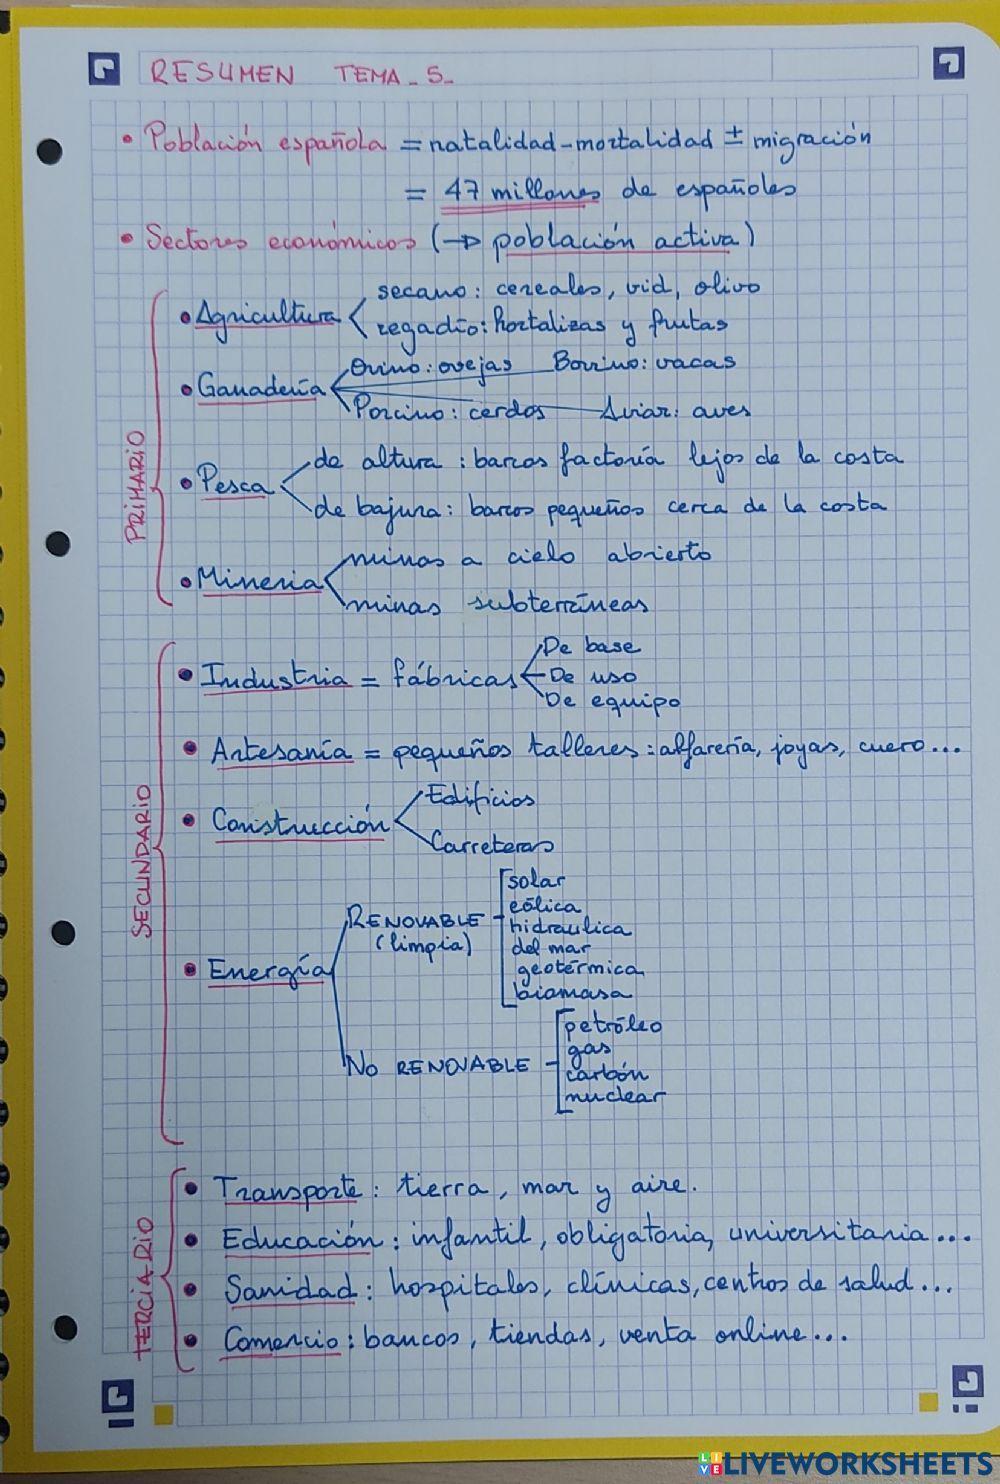 RESUMEN TEMA_5_
• Población española = natalidad-mortalidad ± migración
= 47 millones de españoles
• Sectores económicos (→ población activa)
PRIMARIO
• Agricultura secano: cereales, vid, olivo
regadío: hortalizas y frutas
• Ganadería Ovino: ovejas Bovino: vacas
Porcino: cerdos Aviar: aves
• Pesca de altura: barcos factoría lejos de la costa
de bajura: barcos pequeños cerca de la costa
• Minería minas a cielo abierto
minas subterráneas
SECUNDARIO
• Industria = fábricas De base
De uso
De equipo
• Artesanía = pequeños talleres: alfarería, joyas, cuero...
• Construcción Edificios
Carreteras
• Energía RENOVABLE (limpia) solar
eólica
hidraulica
del mar
geotérmica
biomasa
NO RENOVABLE petróleo
gas
carbón
nuclear
TERCIARIO
• Transporte: tierra, mar y aire.
• Educación: infantil, obligatoria, universitaria...
• Sanidad: hospitales, clínicas, centros de salud...
• Comercio: bancos, tiendas, venta online...
LIVE LIVEWORKSHEETS